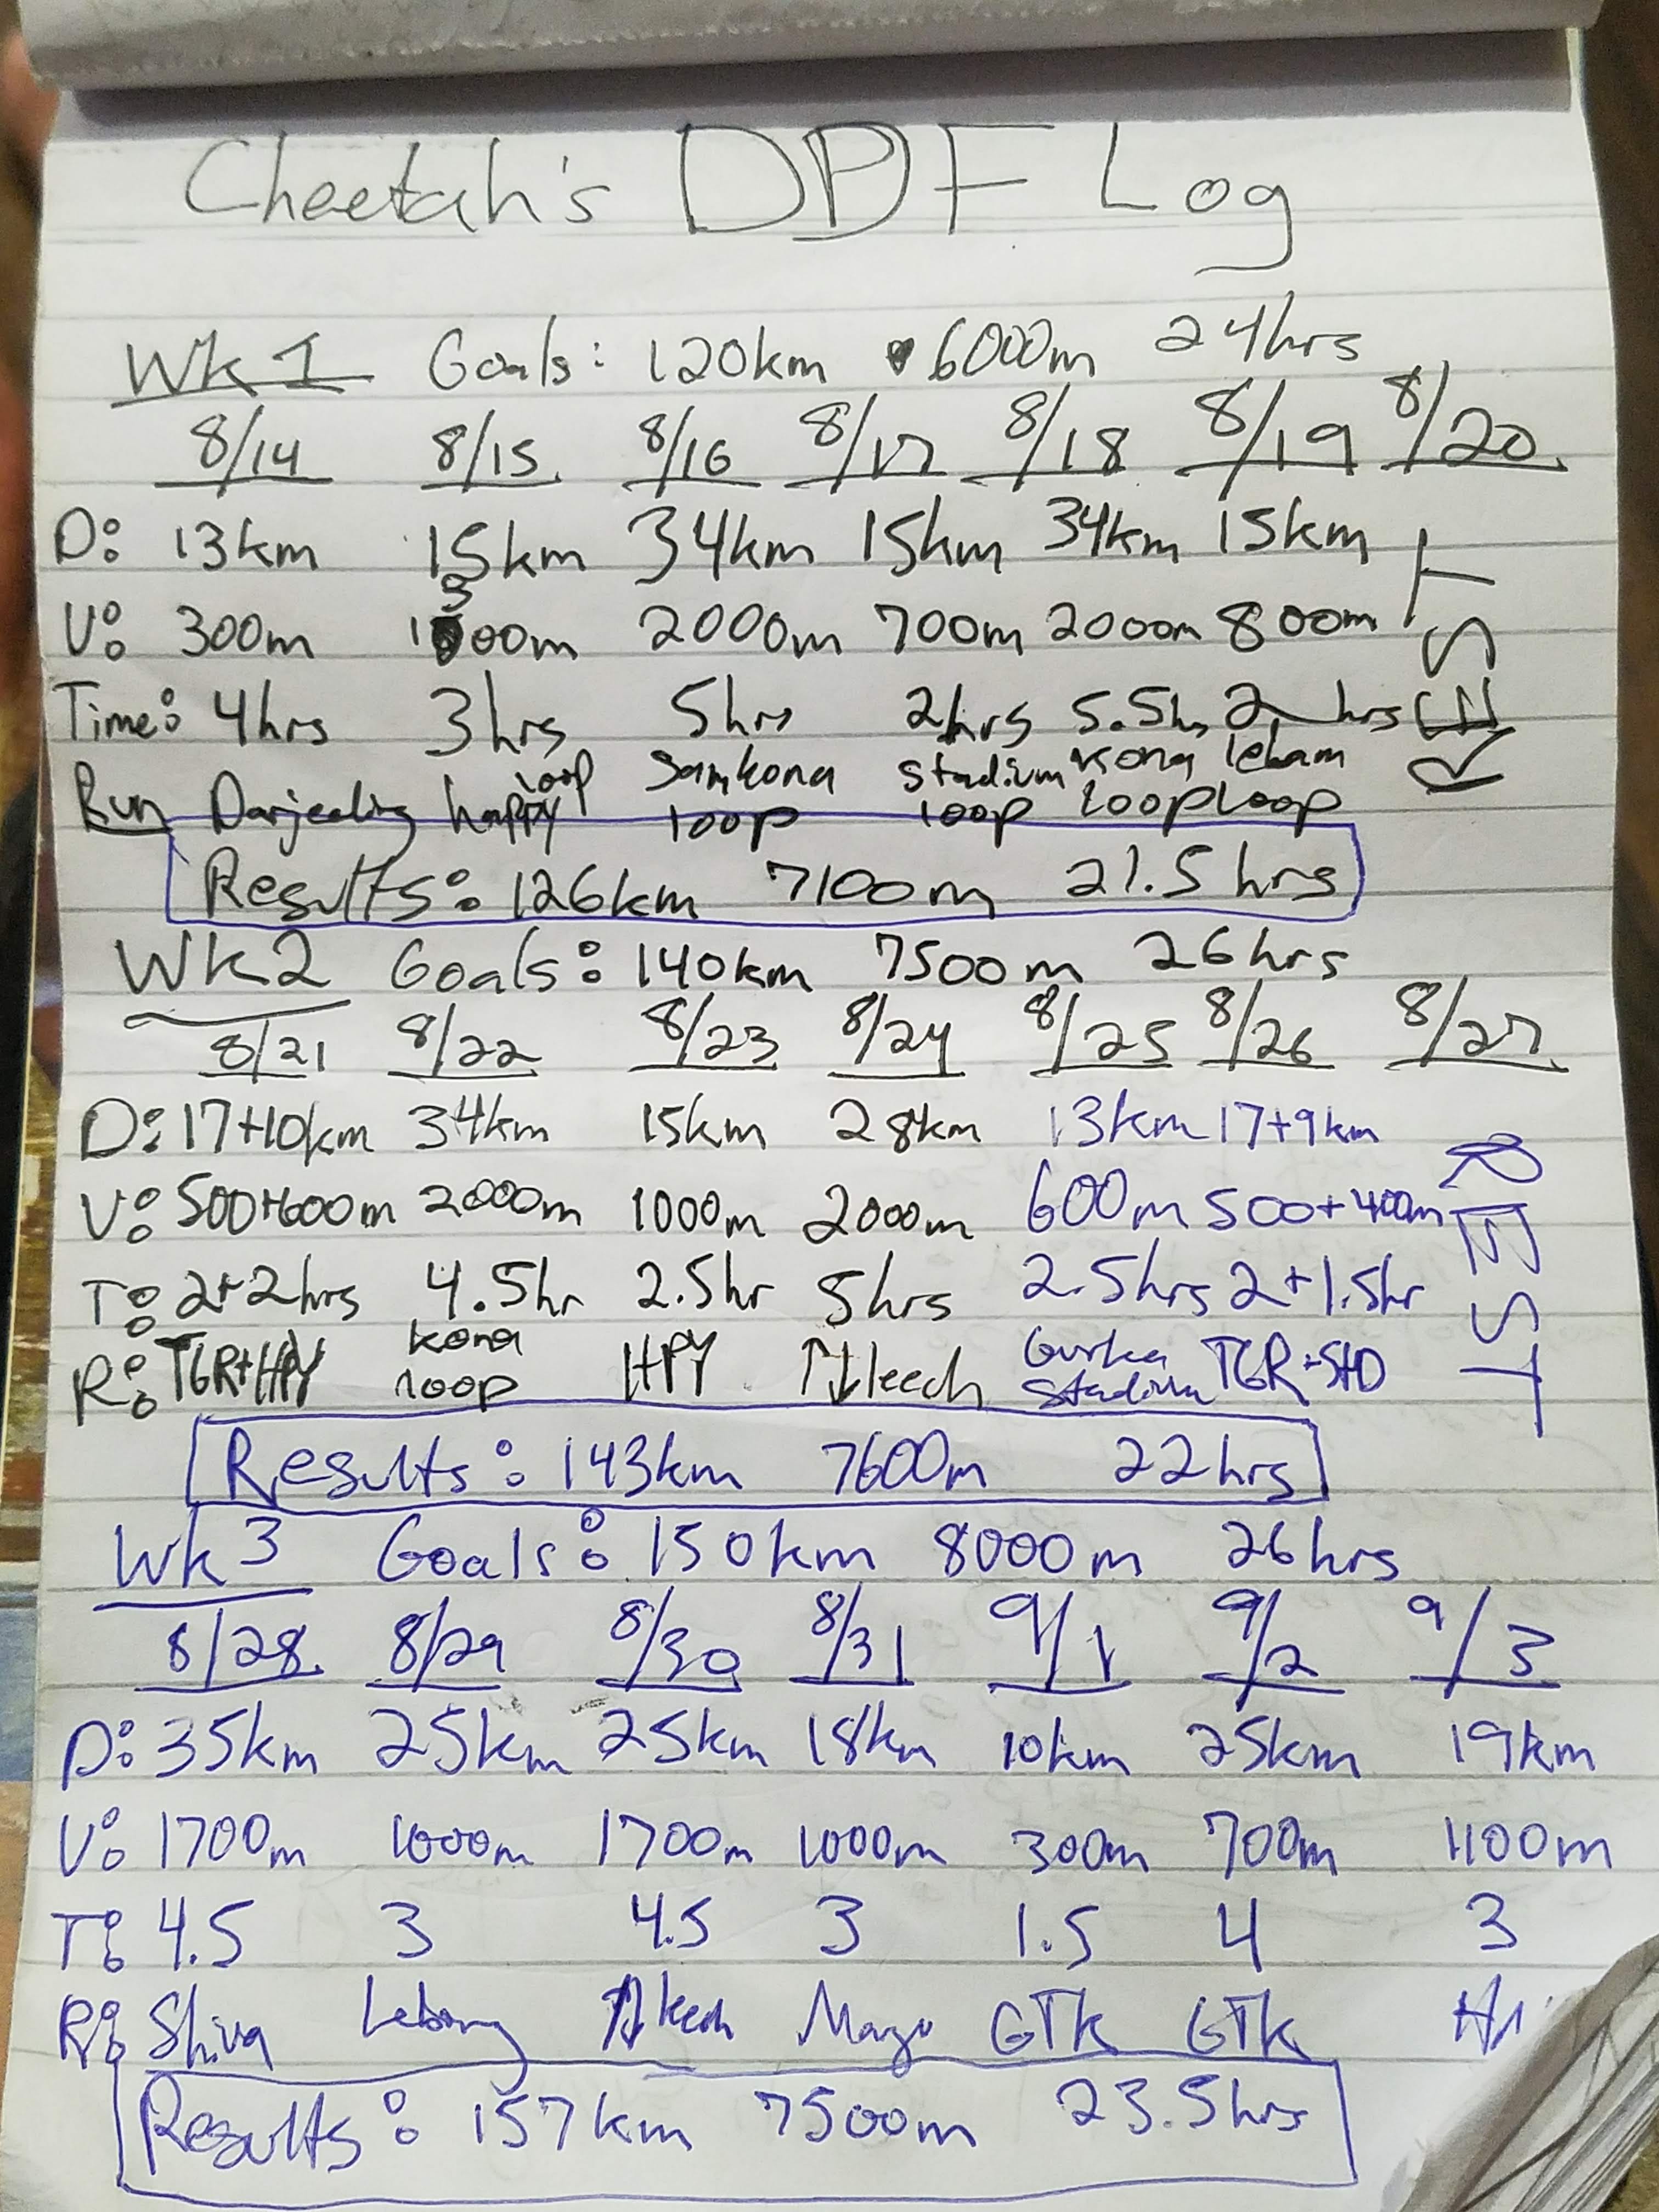 Cheetah's DPF Log
Wk 1 Goals: 120km 6000m 24hrs
8/14 8/15 8/16 8/17 8/18 8/19 8/20
D: 13km 15km 34km 15km 34km 15km REST
V: 300m 1300m 2000m 700m 2000m 800m
Time: 4hrs 3hrs 5hrs 2hrs 5.5hrs 2 hrs
Run Darjeeling happy loop Samkona loop stadium loop Kona loop lebam loop
Results: 126km 7100m 21.5 hrs
Wk2 Goals: 140km 7500m 26hrs
8/21 8/22 8/23 8/24 8/25 8/26 8/27
D: 17+10km 34km 15km 28km 13km 17+9km REST
V: 500+600m 2000m 1000m 2000m 600m 500+400m
T: 2+2hrs 4.5hr 2.5hr 5hrs 2.5hrs 2+1.5hr
R: TGR+HPY kona loop HPY ↑↓leech Gurka Stadium TGR+StD
Results: 143km 7600m 22hrs
Wk 3 Goals: 150km 8000m 26hrs
8/28 8/29 8/30 8/31 9/1 9/2 9/3
D: 35km 25km 25km 18km 10km 25km 19km
V: 1700m 1000m 1700m 1000m 300m 700m 1100m
T: 4.5 3 4.5 3 1.5 4 3
R: Shiva Lebong ↑↓leech GTK GTK
Results: 157km 7500m 23.5hrs